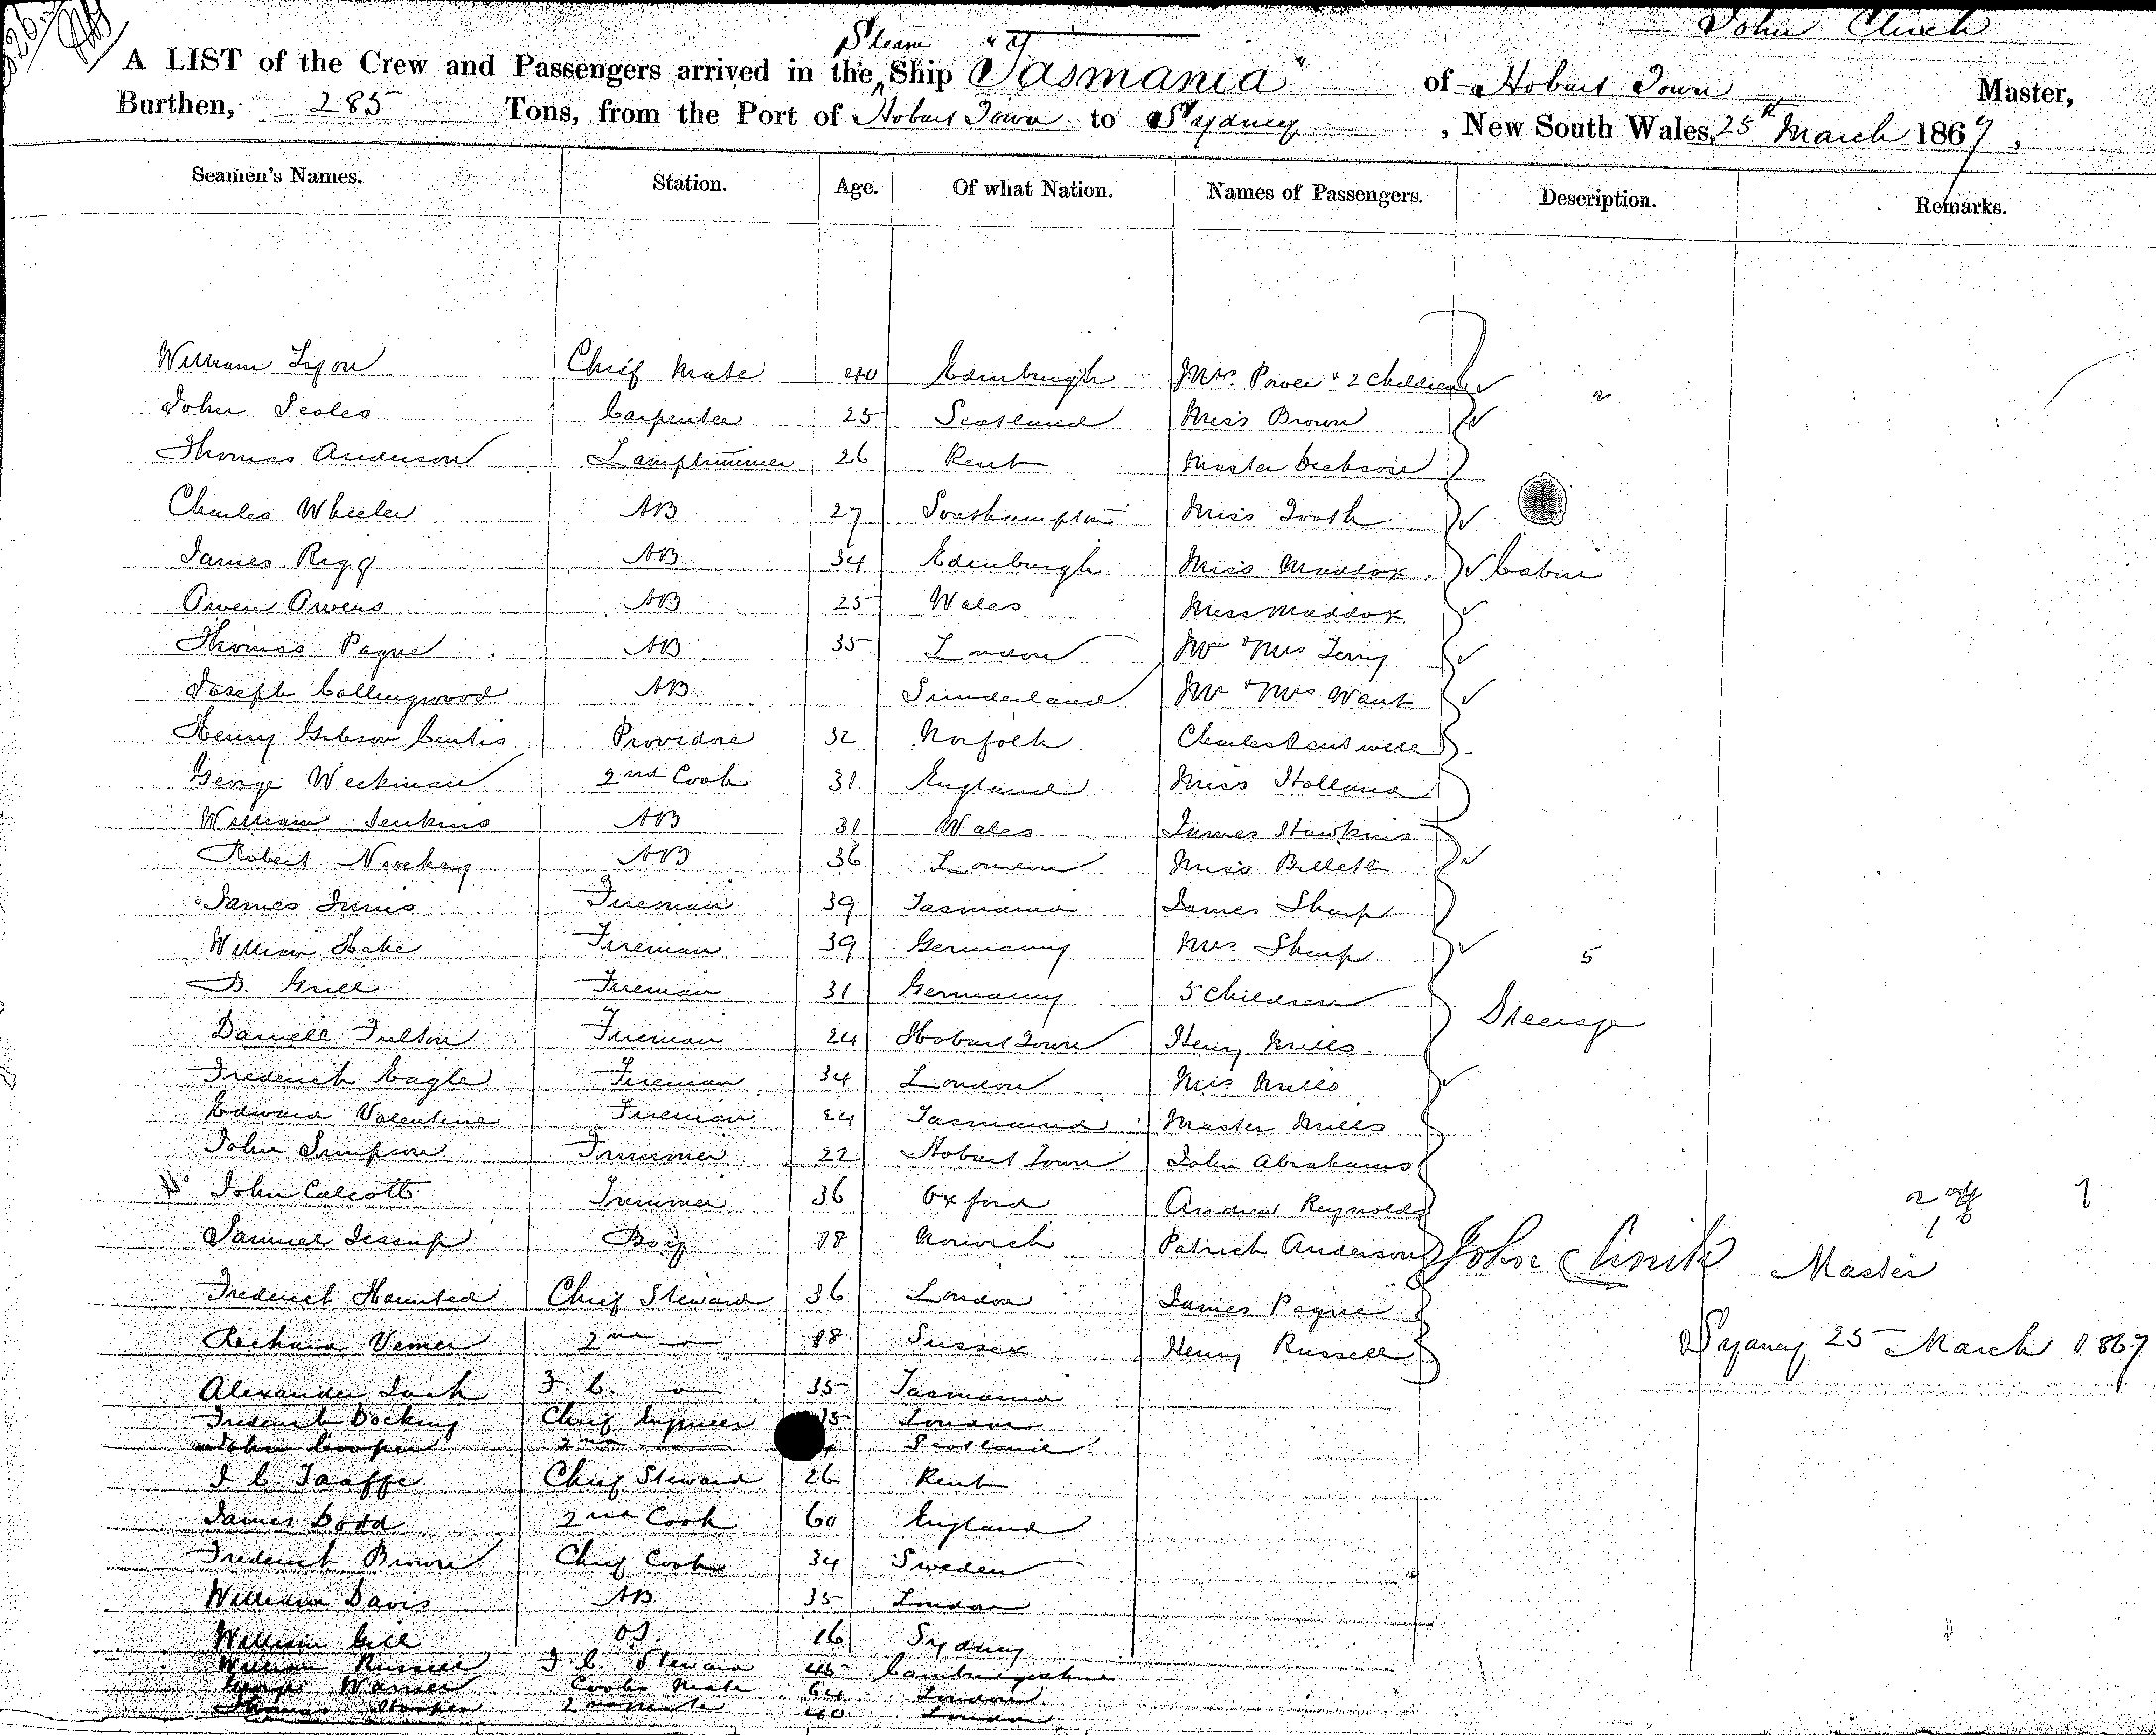 John Clinch
A LIST of the Crew and Passengers arrived in the Steam Ship "Tasmania" of Hobart Town Master,
Burthen, 285 Tons, from the Port of Hobart Town to Sydney, New South Wales, 25th March 1867,
Seamen's Names. Station. Age. Of what Nation. Names of Passengers. Description. Remarks.
William Lyon Chief Mate 40 Edinburgh Mrs. & 2 Children
John Scoles Carpenter 25 Scotland Miss Brown
Thomas Anderson Lamptrimmer 26 Kent Master
Charles Wheeler AB 27 Southampton Miss Tooth
James Rigg AB 34 Edinburgh Miss Maddox Cabin
Owen Owens AB 25 Wales Miss Maddox
Thomas Payne AB 35 London Mr & Mrs Terry
Joseph Collingwood AB Sunderland Mr & Mrs Want
Henry Gibson Curtis Providore 32 Norfolk Charles
George Weekman 2nd Cook 31 England Miss Holland
William Jenkins AB 31 Wales James Hawkins
Robert AB 36 London Miss Billett
James Innis Fireman 39 Tasmania James Sharp
William Hake Fireman 39 Germany Mrs Sharp 5
B. Grell Fireman 31 Germany 5 Children Steerage
Daniell Fulton Fireman 24 Hobart Town Henry Mills
Frederick Cagle Fireman 34 London Mrs Mills
Edward Valentine Fireman 24 Tasmania Master Mills
John Simpson Trimmer 22 Hobart Town John Abrahams
John Calcott Trimmer 36 Oxford Andrew Reynolds
Samuel Jessup Boy 18 Norwich Patrick Anderson John Clinch Master
Frederick Chief Steward 36 London James Payne
Richard Verner 2nd 18 Sussex Henry Russell Sydney 25 March 1867
Alexander 3 C. 35 Tasmania
Frederick Docking Chief Engineer London
John Cooper 2nd Scotland
J C Taaffe Chief Steward 26 Kent
James Dodd 2nd Cook 60 England
Frederick Brown Chief Cook 34 Sweden
William Davis AB 35 London
William Gill OS 16 Sydney
William Russell Steward 45 Cambridgeshire
George Warner Cooks Mate 64 London
Thomas 2nd Mate 40 London